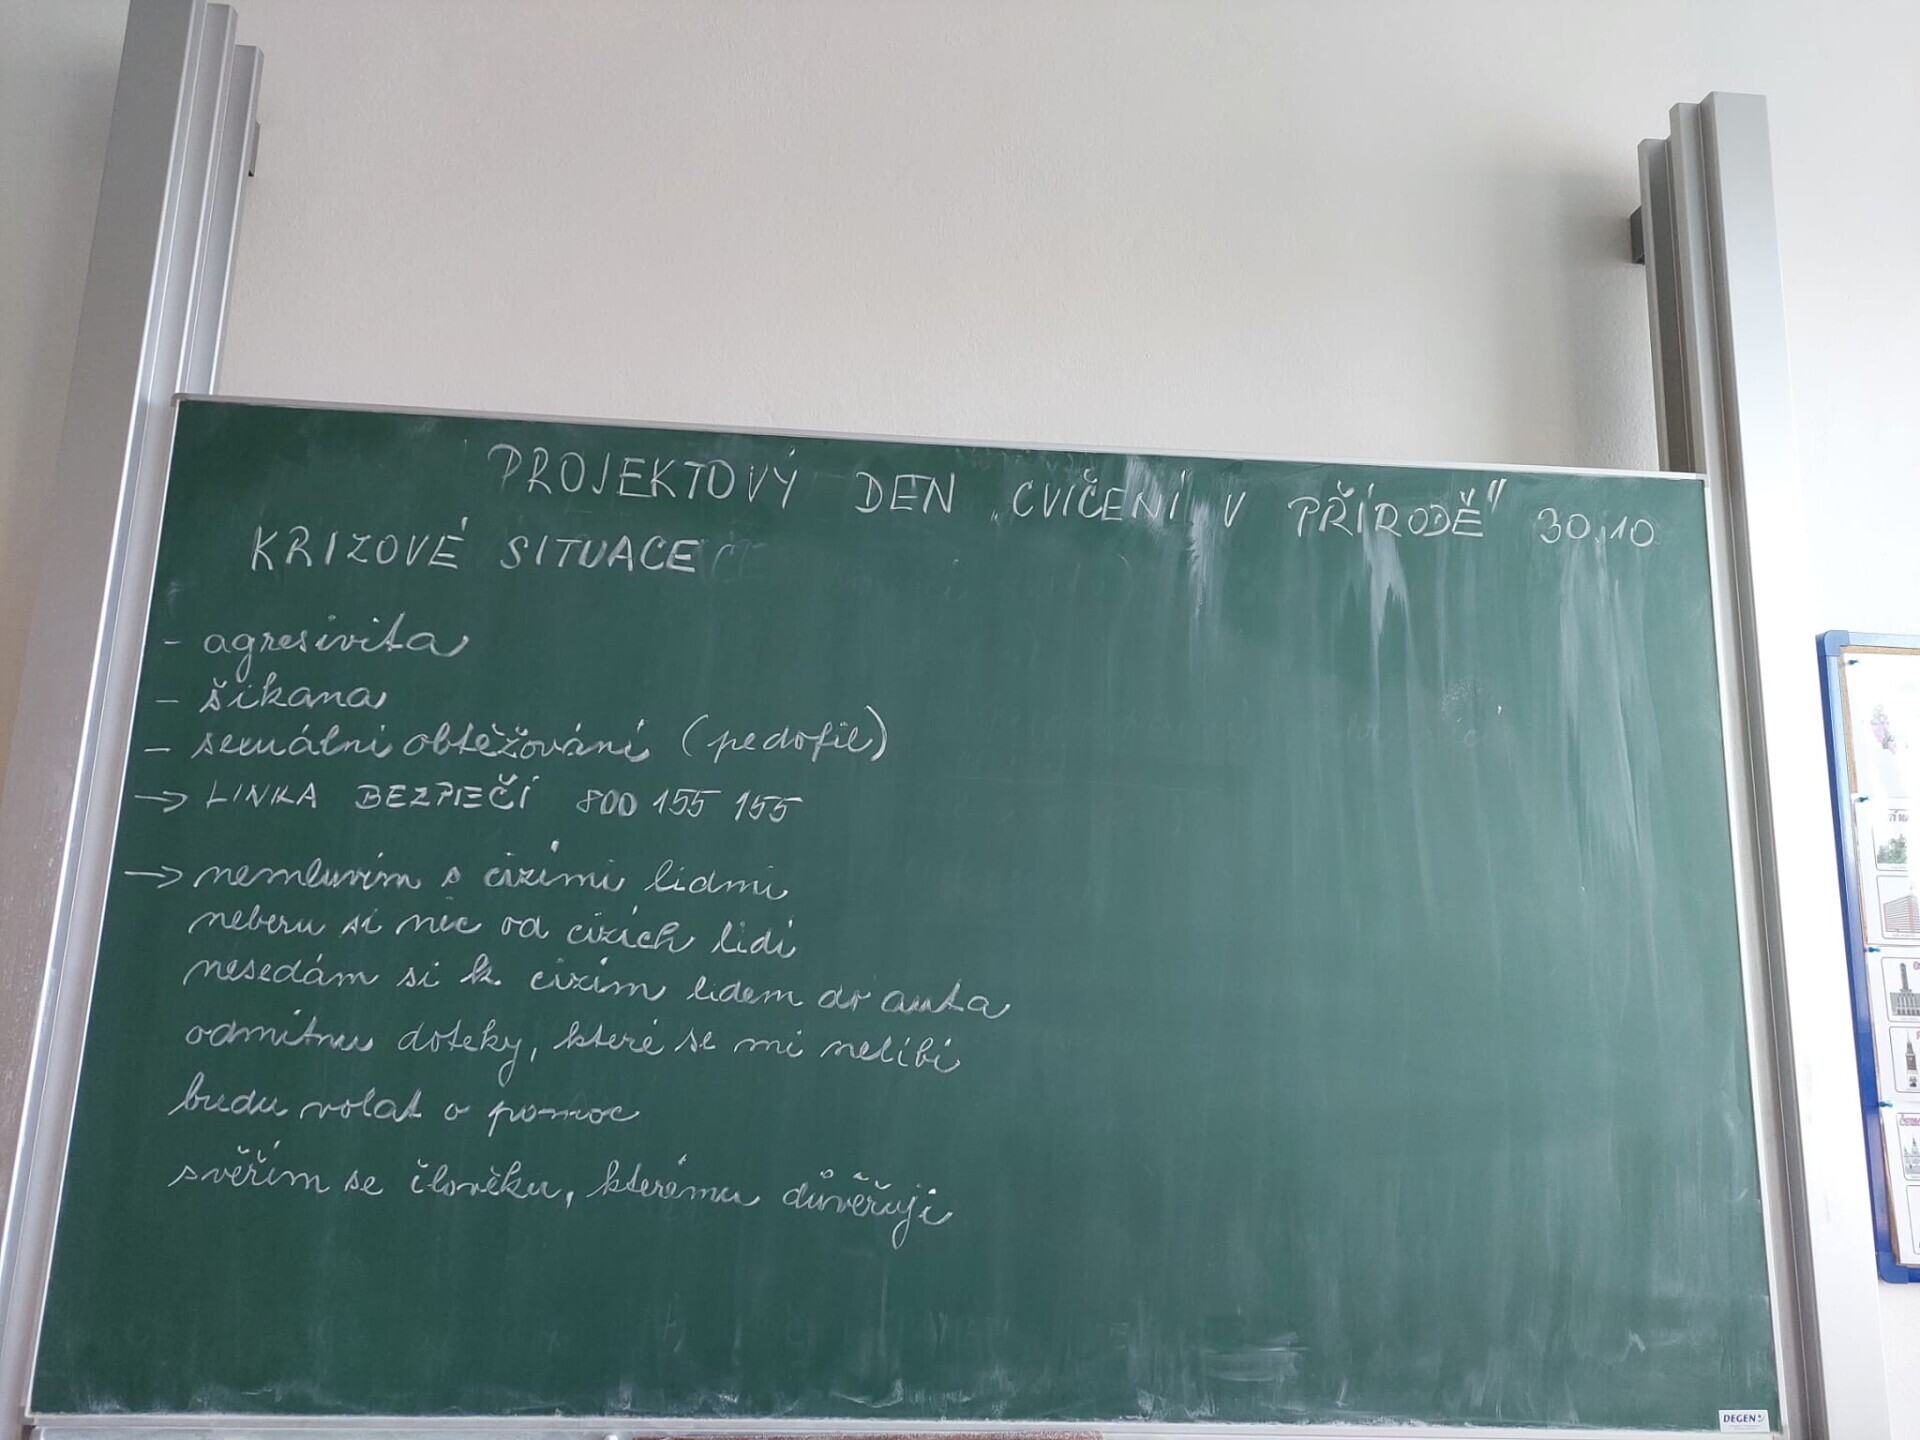 PROJEKTOVÝ DEN „CVIČENÍ V PŘÍRODĚ" 30.10.
KRIZOVÉ SITUACE
- agresivita
- šikana
- sexuální obtěžování (pedofil)
→ LINKA BEZPEČÍ 800 155 155
→ nemluvím s cizími lidmi
neberu si nic od cizích lidí
nesedám si k cizím lidem do auta
odmítnu doteky, které se mi nelíbí
budu volat o pomoc
svěřím se člověku, kterému důvěřuji
DEGEN